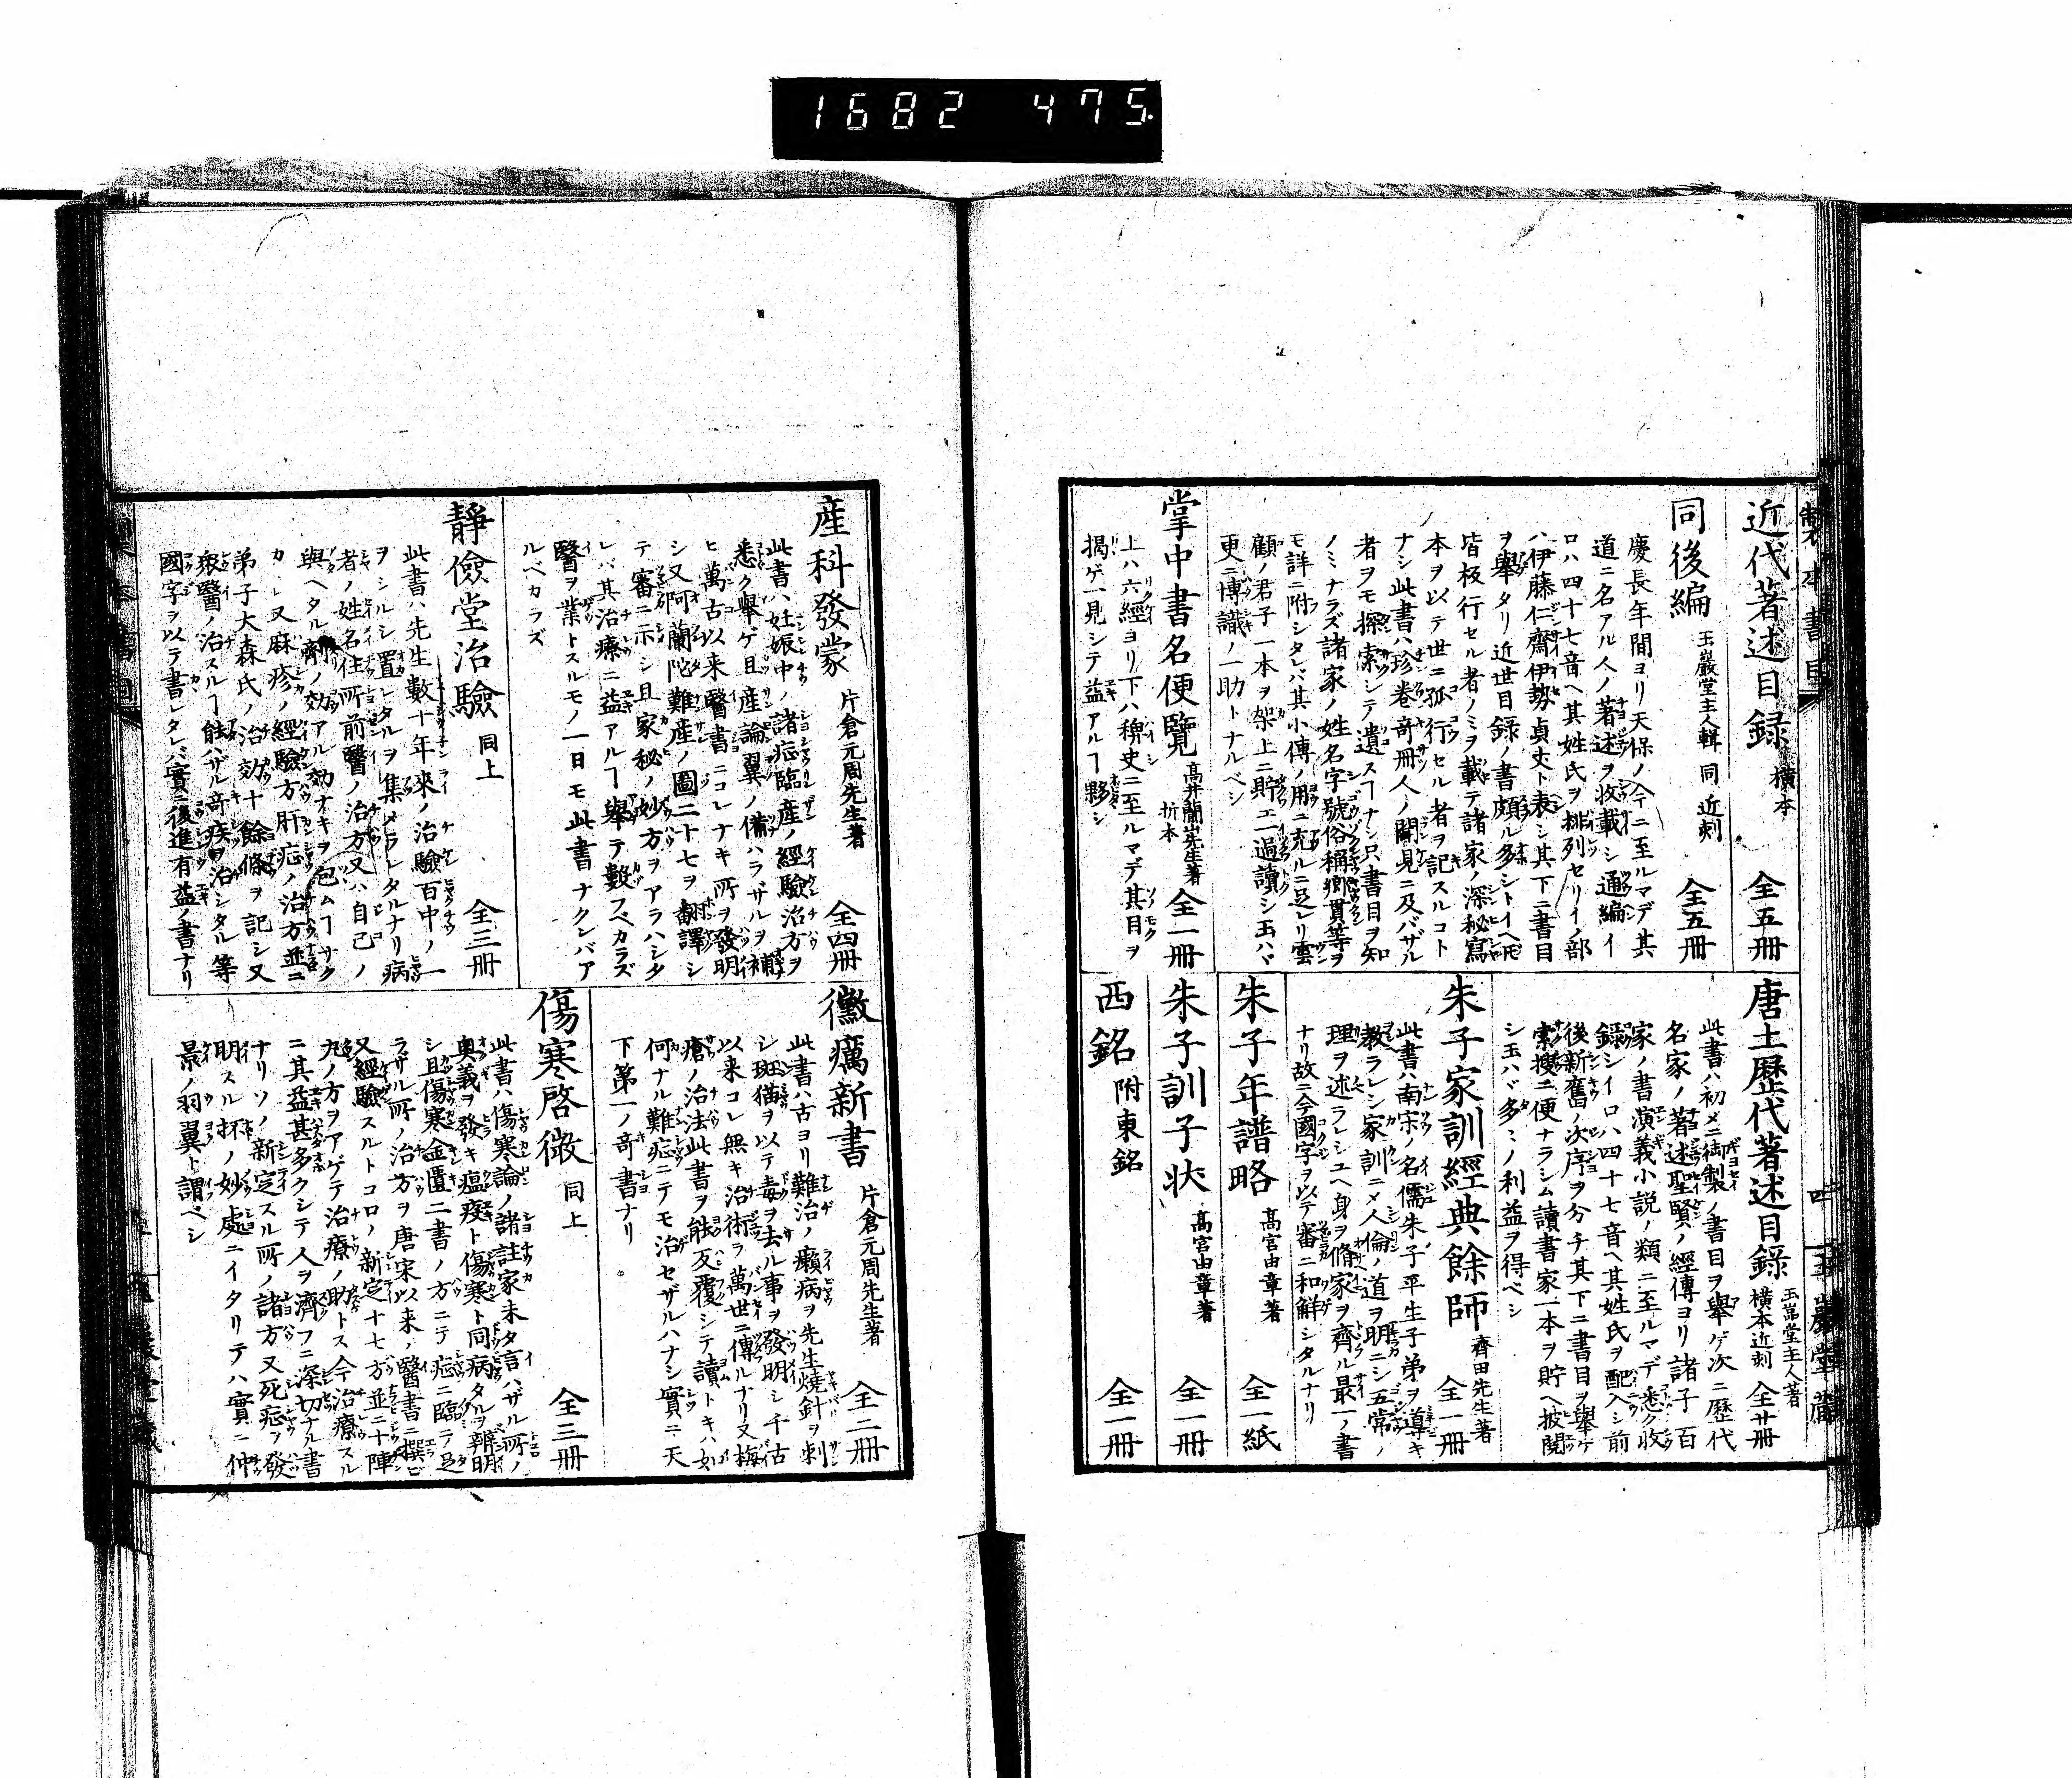 1682 475
製本書目
近代著述目録 横本 全五冊
同後編 玉巖堂主人輯 同 近刻 全五冊
慶長年間ヨリ天保ノ今ニ至ルマデ其
道ニ名アル人ノ著述ヲ收載シ通編イ
ロハ四十七音ヘ其姓氏ヲ排列セリイノ部
ハ伊藤仁齋伊勢貞丈ト表シ其下ニ書目
ヲ舉タリ近世目録ノ書頗ル多シトイヘ𪜈
皆板行セル者ノミヲ載テ諸家ノ深秘寫
本ヲ以テ世ニ孤行セル者ヲ記スルコト
ナシ此書ハ珍巻奇冊人ノ聞見ニ及バザル
者ヲモ探索シテ遺スヿナシ只書目ヲ知
ノミナラズ諸家ノ姓名字號俗稱郷貫等ヲ
モ詳ニ附シタレバ其小傳ノ用ニ充ルニ足レリ雲
顧ノ君子一本ヲ架上ニ貯エ一過讀シ玉ハヾ
更ニ博識ノ一助トナルベシ
掌中書名便覽 高井蘭山先生著 折本 全一冊
上ハ六經ヨリ下ハ稗史ニ至ルマデ其目ヲ
揭ゲ一見シテ益アルヿ夥シ
唐土歷代著述目錄 玉嵓堂主人著 横本近刻 全廿冊
此書ハ初メニ御製ノ書目ヲ舉ゲ次ニ歷代
名家ノ著述聖賢ノ經傳ヨリ諸子百
家ノ書演義小説ノ類ニ至ルマデ悉ク收
錄シイロハ四十七音ヘ其姓氏ヲ配入シ前
後新舊ノ次序ヲ分チ其下ニ書目ヲ舉ゲ
索搜ニ便ナラシム讀書家一本ヲ貯ヘ披閲
シ玉ハヾ多〻ノ利益ヲ得ベシ
朱子家訓經典餘師 齊田先生著 全一冊
此書ハ南宋ノ名儒朱子平生子弟ヲ導キ
教ラレシ家訓ニメ人倫ノ道ヲ明ニシ五常ノ
理ヲ述ラレシユヘ身ヲ脩家ヲ齊ル最一ノ書
ナリ故ニ今國字ヲ以テ審ニ和解シタルナリ
朱子年譜略 髙宮由章著 全一紙
朱子訓子状 髙宮由章著 全一冊
西銘 附東銘 全一冊
玉巖堂藏
産科發蒙 片倉元周先生著 全四冊
此書ハ妊娠中ノ諸症臨産ノ經驗治方ヲ
悉ク舉ゲ且産論翼ノ備ハラザルヲ補
ヒ萬古以来醫書ニコレナキ所ヲ發明
シ又阿蘭陀難産ノ圖二十七ヲ翻譯シ
テ審ニ示シ且家秘ノ妙方ヲアラハシタ
レバ其治療ニ益アルヿ舉テ數フベカラズ
醫ヲ業トスルモノ一日モ此書ナクンバア
ルベカラズ
靜儉堂治驗 同上 全三冊
此書ハ先生數十年来ノ治驗百中ノ一
ヲシルシ置レタルヲ集メラレタルナリ病
者ノ姓名住所前醫ノ治方又ハ自己ノ
與ヘタル劑ノ効アル効ナキヲ包ムヿナク
カレ又麻疹ノ經驗方肝症ノ治方並ニ
弟子大森氏ノ治効十餘條ヲ記シ又
衆醫ノ治スルヿ能ハザル奇疾ヲ治シタル等
國字ヲ以テ書レタレバ實ニ後進有益ノ書ナリ
黴癘新書 片倉元周先生著 全二冊
此書ハ古ヨリ難治ノ癩病ヲ先生燒針ヲ刺
シ斑猫ヲ以テ毒ヲ去ル事ヲ發明シ千古
以来コレ無キ治術ヲ萬世ニ傳ルナリ又梅
瘡ノ治法此書ヲ能反覆シテ讀トキハ如
何ナル難症ニテモ治セザルハナシ實ニ天
下第一ノ奇書ナリ
傷寒啓微 同上 全三冊
此書ハ傷寒論ノ諸註家未タ言ハザル所ノ
奥義ヲ發キ瘟疫ト傷寒ト同病タルヲ辨明
シ且傷寒金匱二書ノ方ニテ症ニ臨ミテ足
ラザル所ノ治方ヲ唐宋以来ノ醫書ニ撰ビ
又經驗スルトコロノ新定十七方並ニ十陣
丸ノ方ヲアゲテ治療ノ助トス今治療スル
ニ其益甚多クシテ人ヲ濟フニ深切ナル書
ナリソノ新定スル所ノ諸方又死症ヲ發
明スル抔ノ妙處ニイタリテハ實ニ仲
景ノ羽翼ト謂ベシ